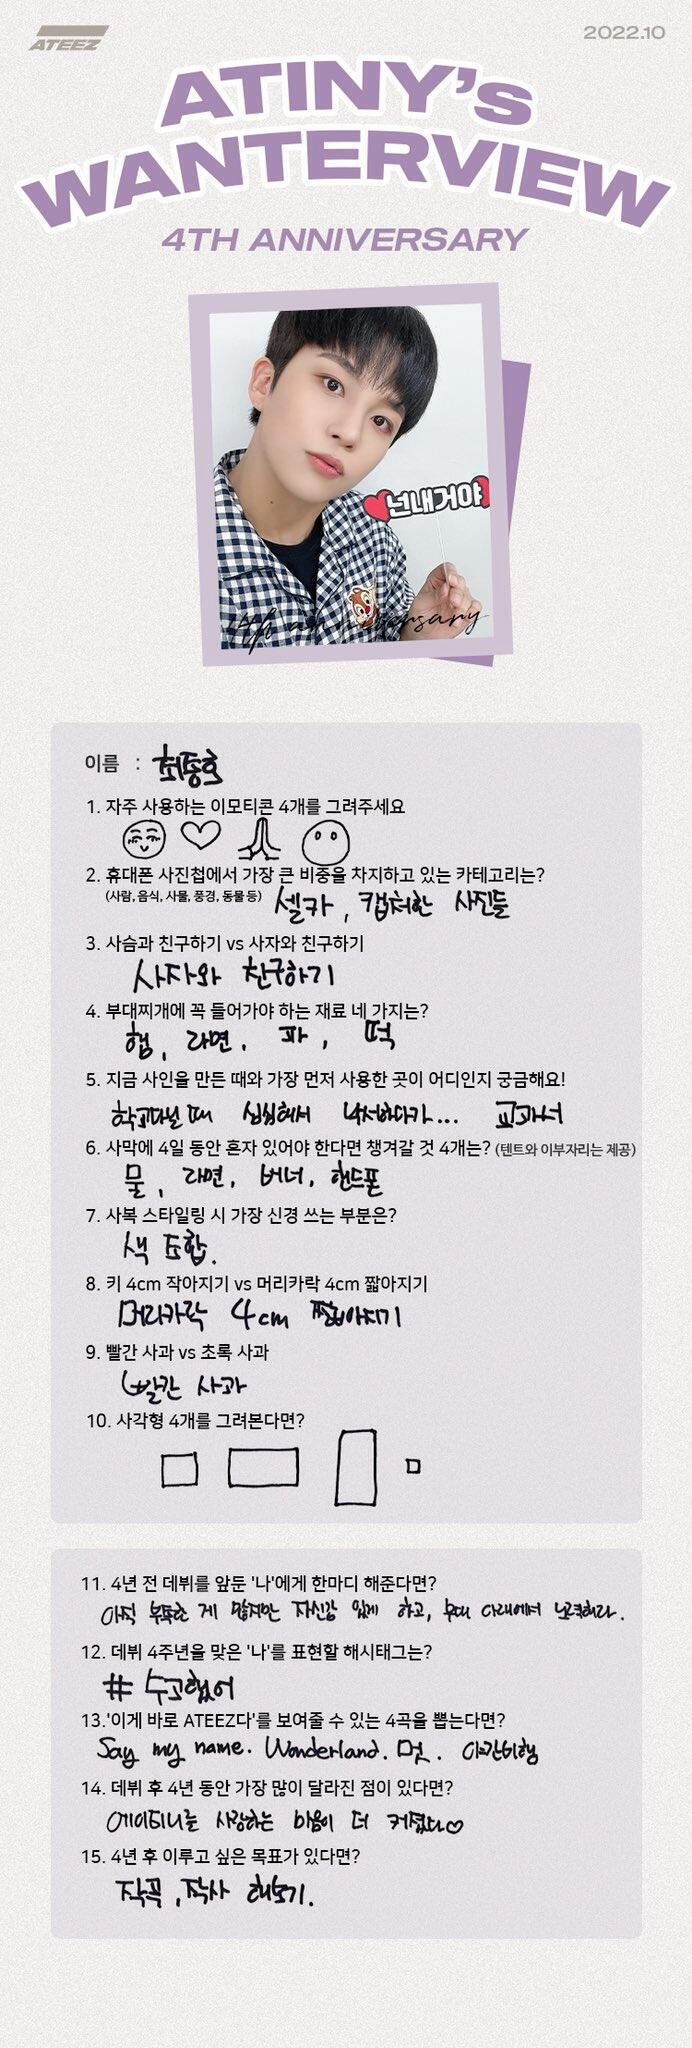 ATEEZ
2022.10
ATINY's
WANTERVIEW
4TH ANNIVERSARY
넌내거야
4th anniversary
이름 : 최종호
1. 자주 사용하는 이모티콘 4개를 그려주세요
2. 휴대폰 사진첩에서 가장 큰 비중을 차지하고 있는 카테고리는?
(사람, 음식, 사물, 풍경, 동물 등) 셀카, 캡처한 사진들
3. 사슴과 친구하기 vs 사자와 친구하기
사자와 친구하기
4. 부대찌개에 꼭 들어가야 하는 재료 네 가지는?
햄, 라면, 파, 떡
5. 지금 사인을 만든 때와 가장 먼저 사용한 곳이 어디인지 궁금해요!
학교다닐 때 심심해서 낙서하다가... 교과서
6. 사막에 4일 동안 혼자 있어야 한다면 챙겨갈 것 4개는? (텐트와 이부자리는 제공)
물, 라면, 버너, 핸드폰
7. 사복 스타일링 시 가장 신경 쓰는 부분은?
색 조합.
8. 키 4cm 작아지기 vs 머리카락 4cm 짧아지기
머리카락 4cm 짧아지기
9. 빨간 사과 vs 초록 사과
빨간 사과
10. 사각형 4개를 그려본다면?
11. 4년 전 데뷔를 앞둔 '나'에게 한마디 해준다면?
아직 부족한 게 많지만 자신감 있게 하고, 무대 아래에서 노력해라.
12. 데뷔 4주년을 맞은 '나'를 표현할 해시태그는?
# 수고했어
13.'이게 바로 ATEEZ다'를 보여줄 수 있는 4곡을 뽑는다면?
Say my name. Wonderland. 멋. 야간비행
14. 데뷔 후 4년 동안 가장 많이 달라진 점이 있다면?
에이티니를 사랑하는 마음이 더 커졌다♡
15. 4년 후 이루고 싶은 목표가 있다면?
작곡, 작사 해보기.